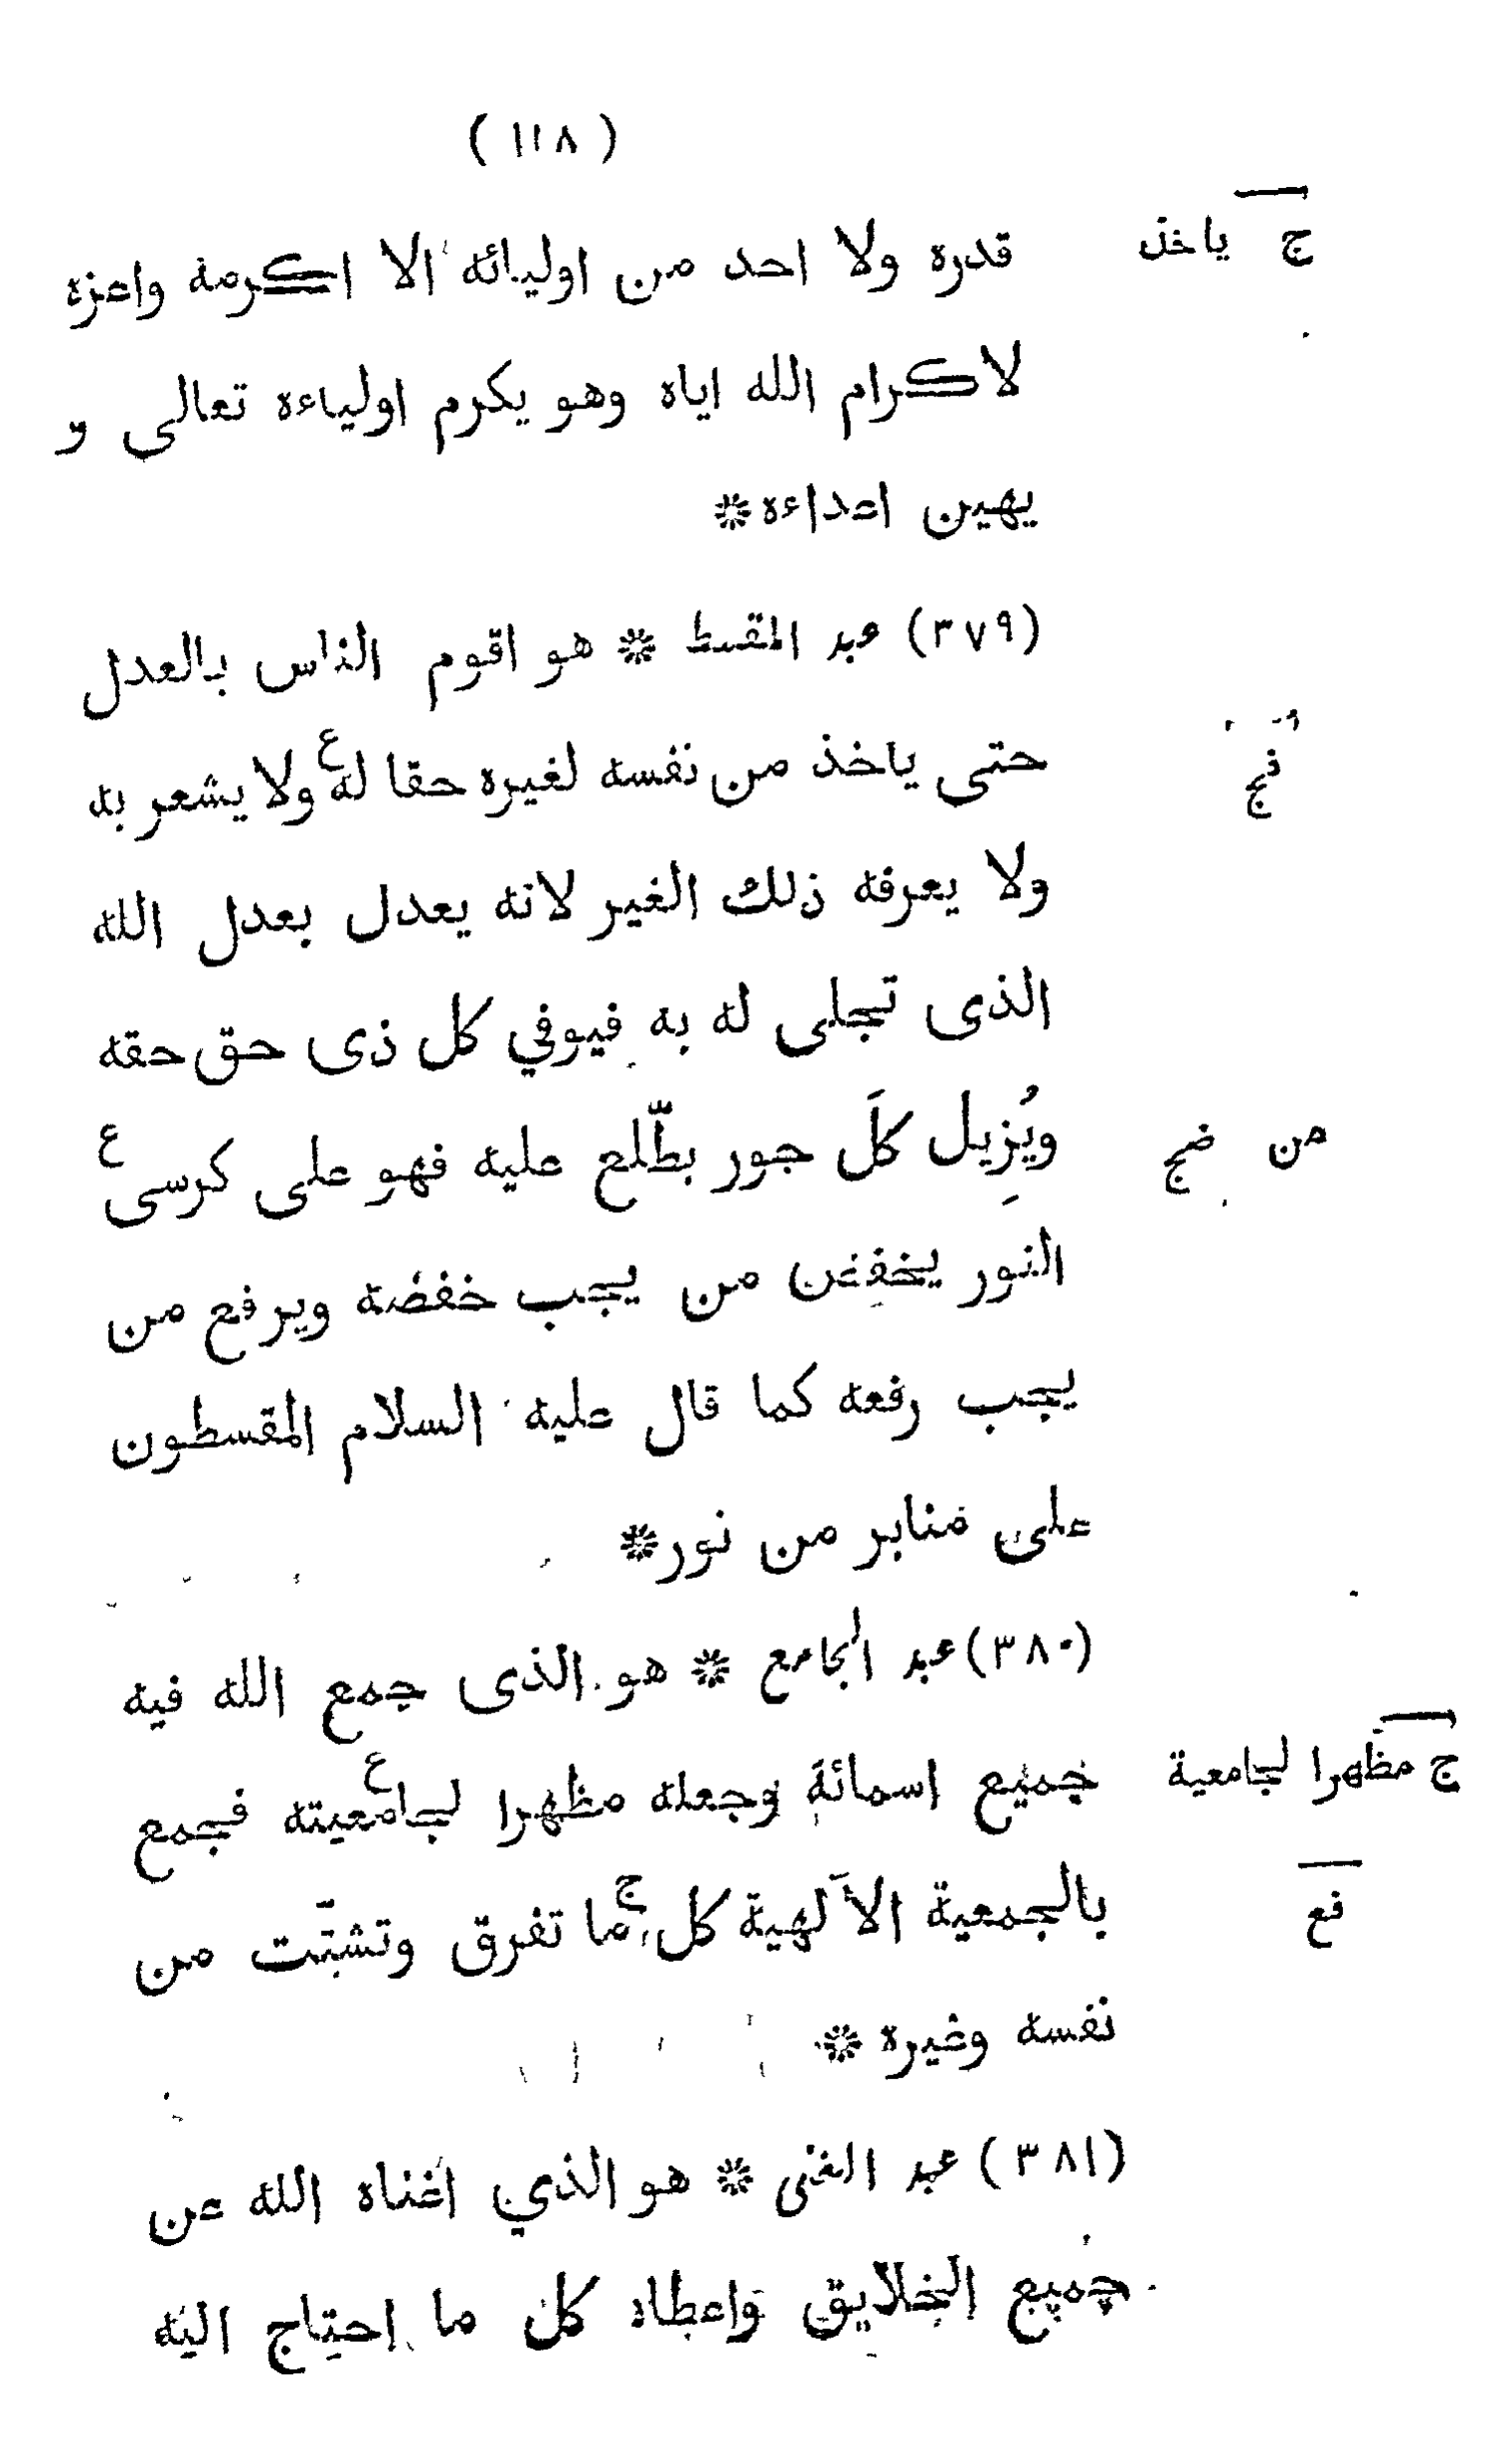 ( ١١٨ )
قدره ولا احد من اوليائه الا اكرمه واعزه
ج ياخذ
لاكرام الله اياه وهو يكرم اولياءه تعالى و
يهين اعداءه *
(٣٧٩) عبد المقسط * هو اقوم الناس بالعدل
حتى ياخذ من نفسه لغيره حقا له ع ولا يشعر به
ولا يعرفه ذلك الغير لانه يعدل بعدل الله
الذى تجلى له به فيوفي كل ذى حق حقه
ويُزِيل كلَ جور يطّلع عليه فهو على كرسى ع
من ضج
النور يخفض من يجب خفضه ويرفع من
يجب رفعه كما قال عليه السلام المقسطون
على منابر من نور *
(٣٨٠) عبد الجامع * هو الذى جمع الله فيه
جميع اسمائه وجعله مظهرا لجامعيته ع فجمع
ج مظهرا لجامعية
بالجمعية الآلهية كل ج ما تفرق وتشتّت من
فع
نفسه وغيره *
(٣٨١) عبد الغنى * هو الذي اغناه الله عن
جميع الخلايق واعطاه كل ما احتاج اليه